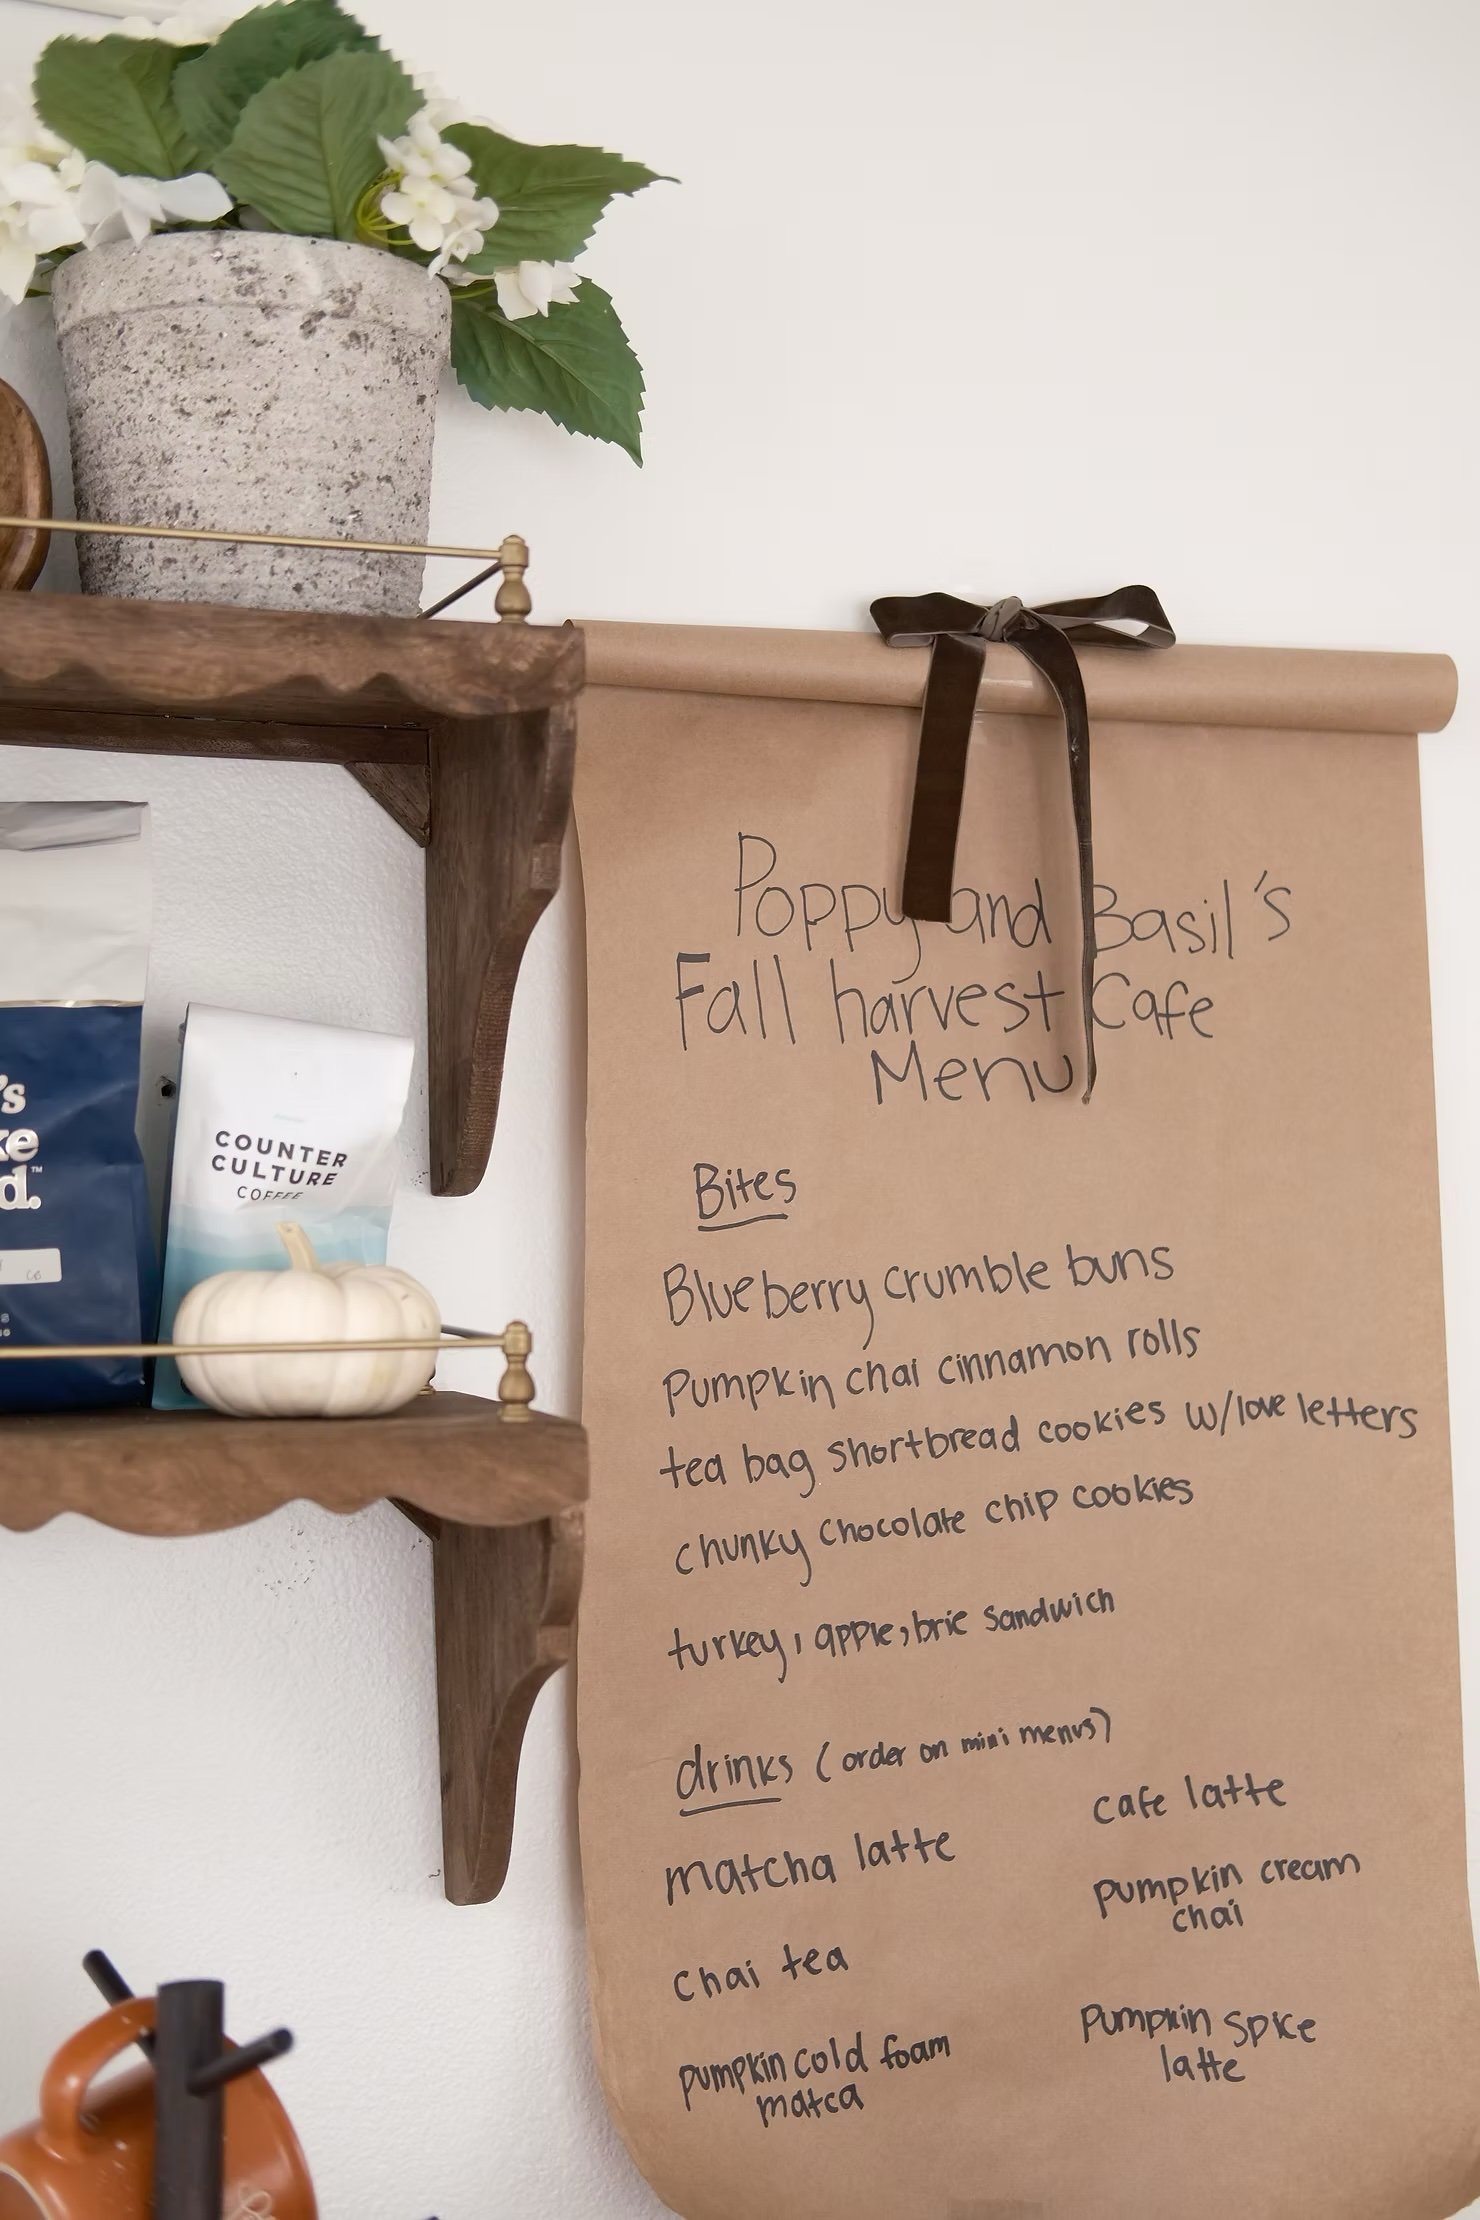 Poppy and Basil's
Fall harvest Cafe
Menu
Bites
Blueberry crumble buns
Pumpkin chai cinnamon rolls
tea bag shortbread cookies w/love letters
chunky chocolate chip cookies
turkey, apple, brie sandwich
drinks (order on mini menus)
matcha latte
cafe latte
chai tea
pumpkin cream
chai
pumpkin cold foam
matca
Pumpkin spice
latte
COUNTER
CULTURE
COFFEE
's
ke
d.™